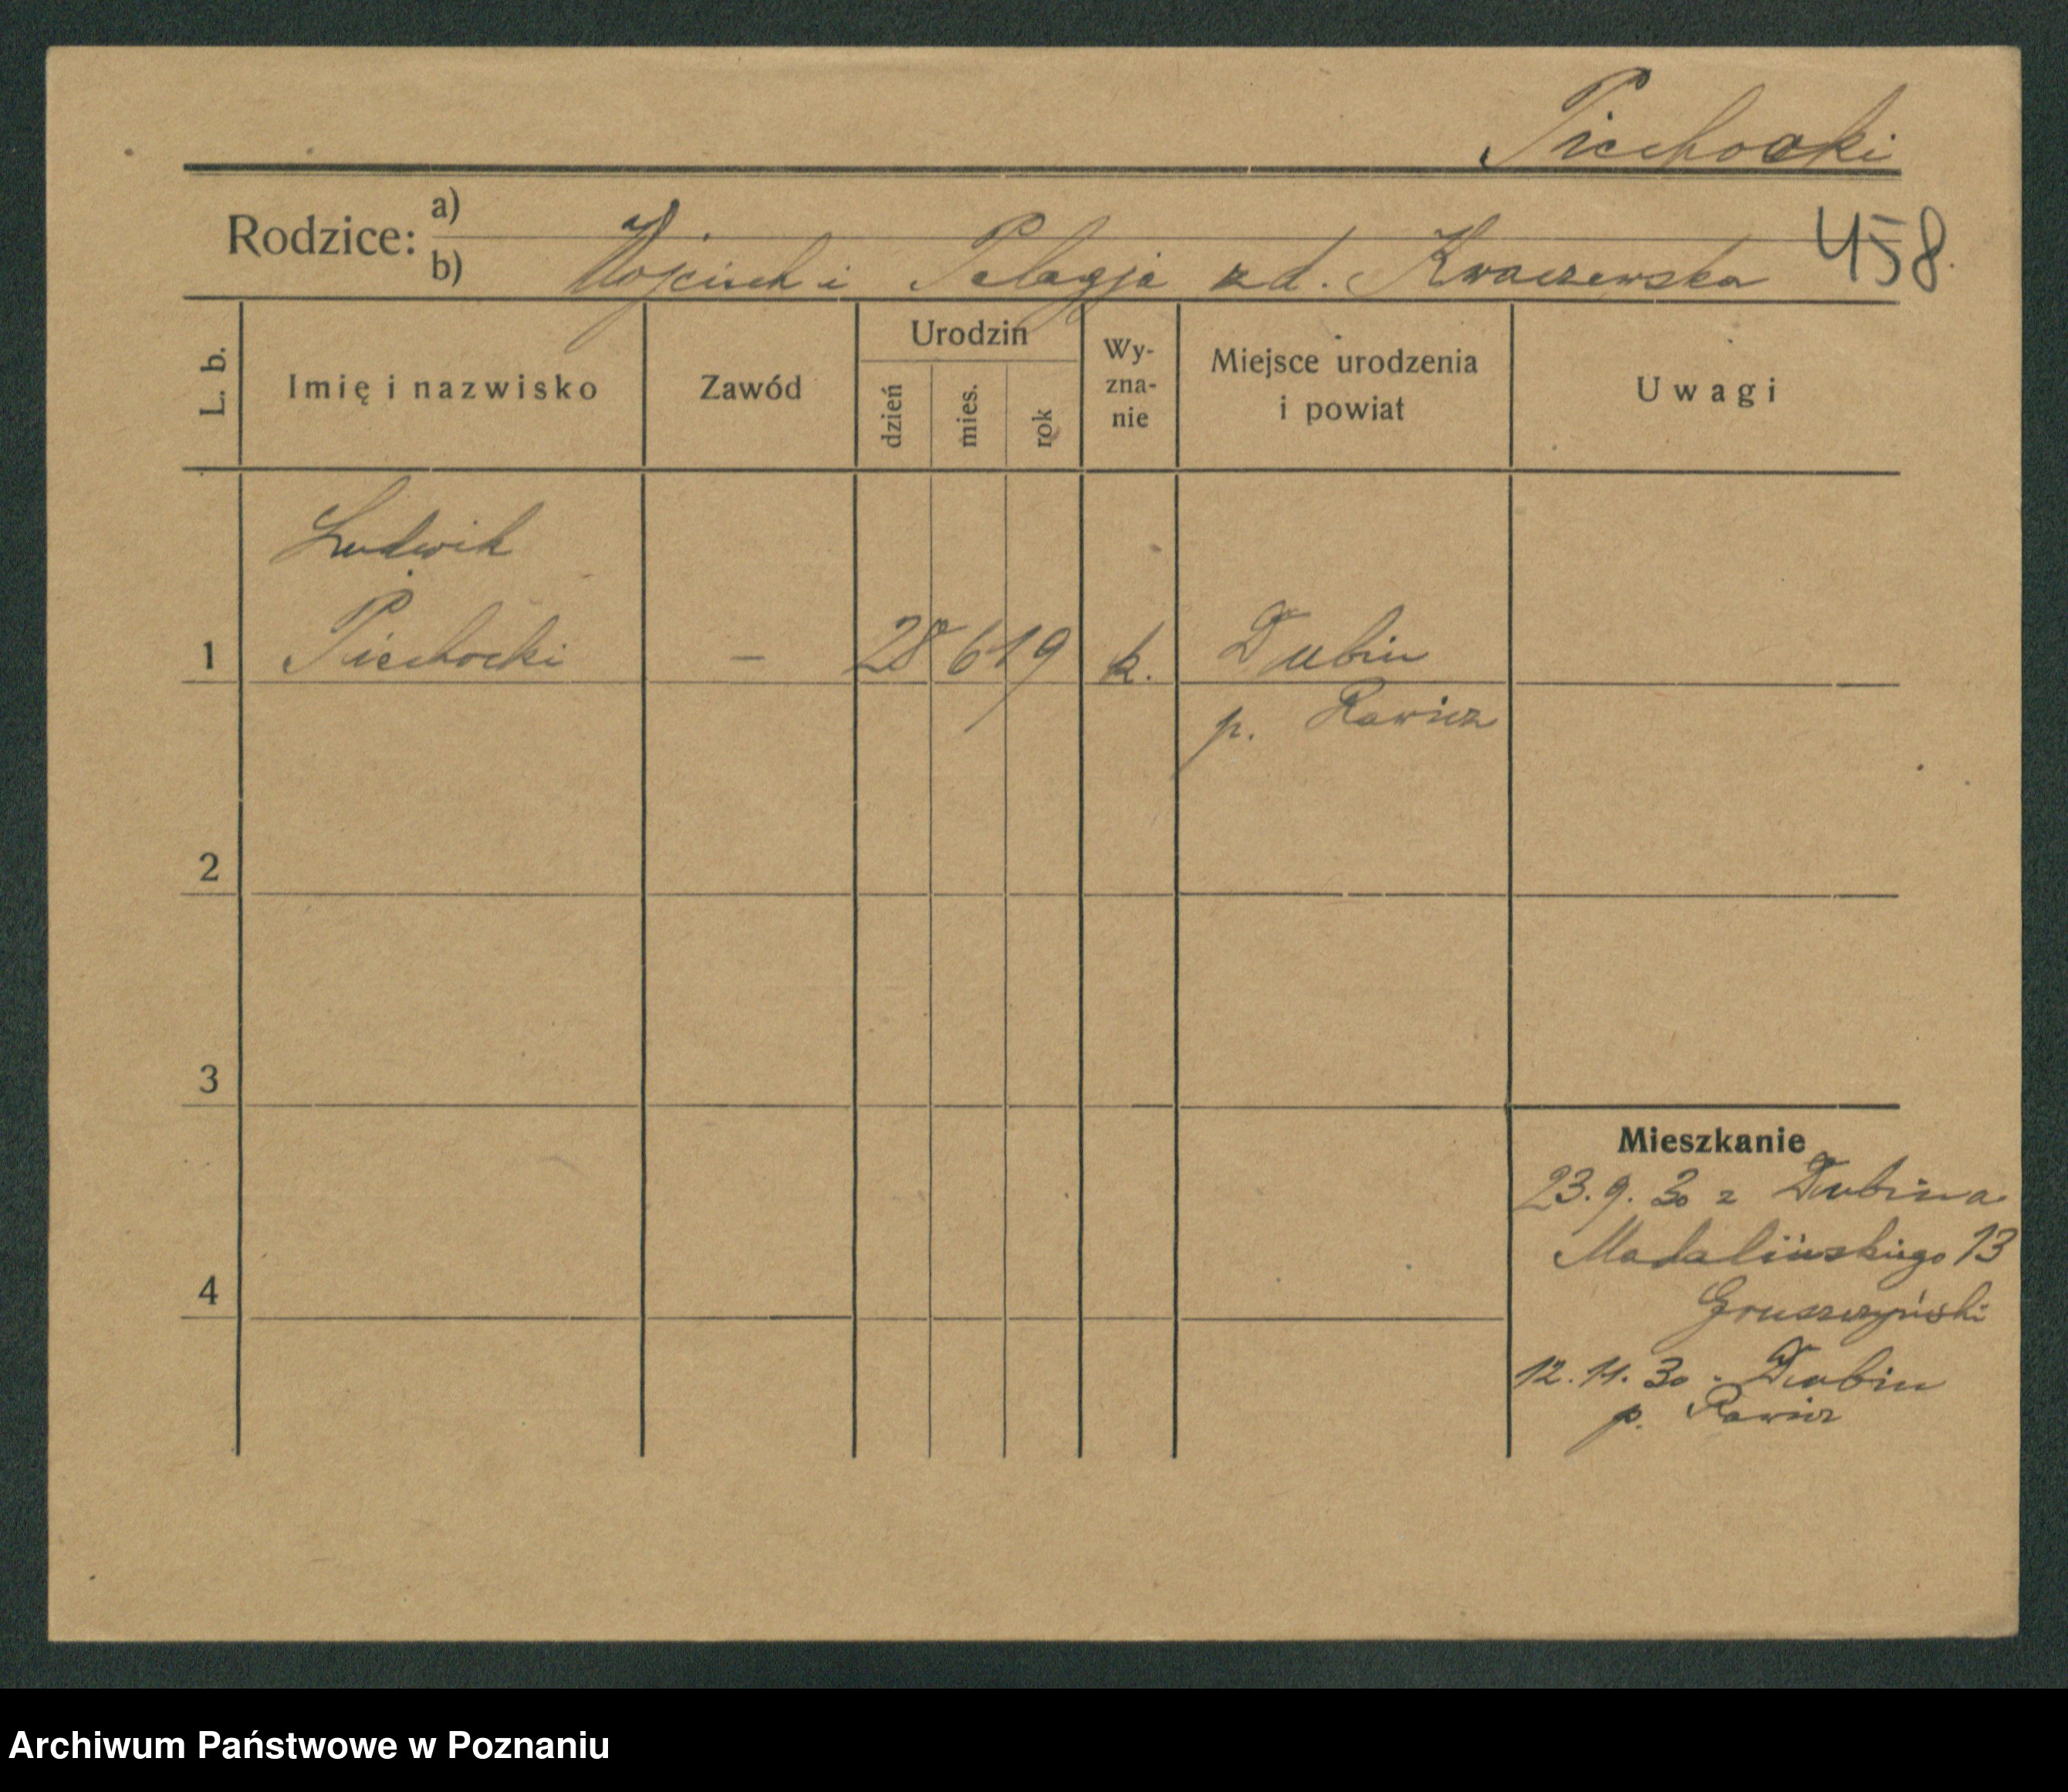 Piechocki
Rodzice: a)
b) Wojciech i Pelagja zd. Kwaczewska 458
L. b.
Imię i nazwisko
Zawód
Urodzin
dzień
mies.
rok
Wy-
zna-
nie
Miejsce urodzenia
i powiat
Uwagi
Ludwik
1 Piechocki – 28 6 19 k. Dubin
p. Rawicz
2
3
4
Mieszkanie
23.9.30 z Dubina
Madalińskiego 13
Gruszczyński
12.11.30. Dubin
p. Rawicz
Archiwum Państwowe w Poznaniu